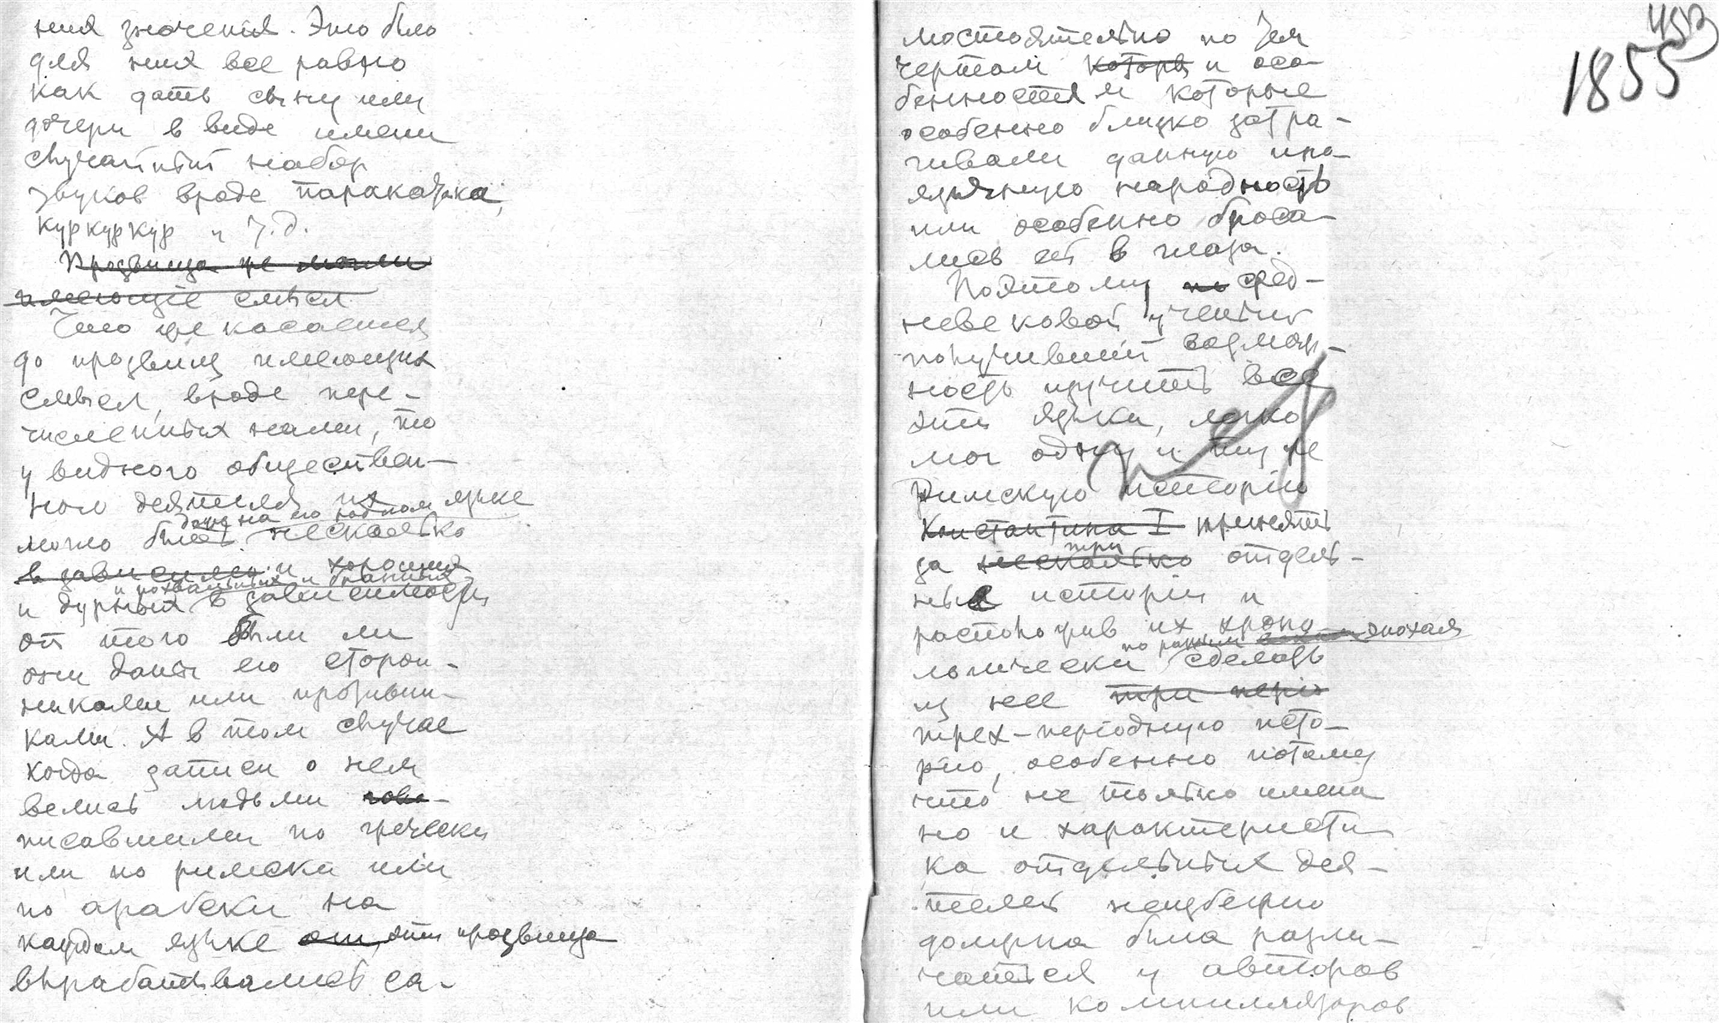 ния значения. Это было
для них все равно
как дать сыну или
дочери в виде имени
случайный набор
звуков вроде паракачка,
куркуркур и т.д.
Прозвища же могли
имеющие смысл
Что же касается
до прозвищ имеющих
смысл, вроде пере-
численных нами, то
у видного обществен-
ного деятеля их
даже на его родном языке
могло быть несколько
в зависимо и хороших
и похвальных и бранных
и дурных в зависимости
от того были ли
они даны его сторон-
никами или противни-
ками. А в том случае
когда записи о нем
велись людьми гово-
писавшими по гречески
или по римски или
по арабски на
каждом языке эти прозвища
вырабатывались са-
1855
мостоятельно по тем
чертам которые и осо-
бенностям которые
особенно близко затра-
гивали данную ино-
язычную народность
или особенно броса-
лись ей в глаза.
Поэтому по сред-
невековой ученый
получивший возмож-
ность изучить все
эти языки, легко
мог одну и ту же
Римскую историю
Константина I принять
за несколько три отдель-
ные истории и
расположив их хроно-
по разным эпохам
логически сделать
из нее три пери
трех-периодную исто-
рию, особенно потому
что не только имена
но и характеристи-
ка отдельных дея-
телей неизбежно
должна была разли-
чаться у авторов
или компиляторов